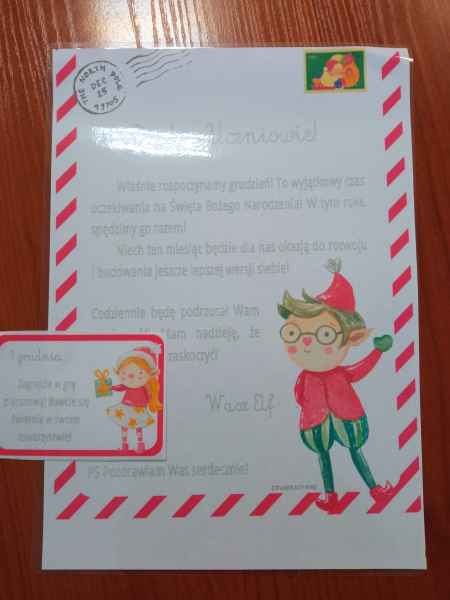 THE NORTH POLE
DEC
25
Uczniowie!
Właśnie rozpoczynamy grudzień! To wyjątkowy czas
oczekiwania na Święta Bożego Narodzenia! W tym roku
spędzimy go razem!
Niech ten miesiąc będzie dla nas okazją do rozwoju
i budowania jeszcze lepszej wersji siebie!
Codziennie będę podrzucał Wam
Mam nadzieję, że
zaskoczyć!
1 grudnia
Zagrajcie w grę
planszową! Bawcie się
świetnie w swoim
towarzystwie!
Wasz Elf
PS Pozdrawiam Was serdecznie!